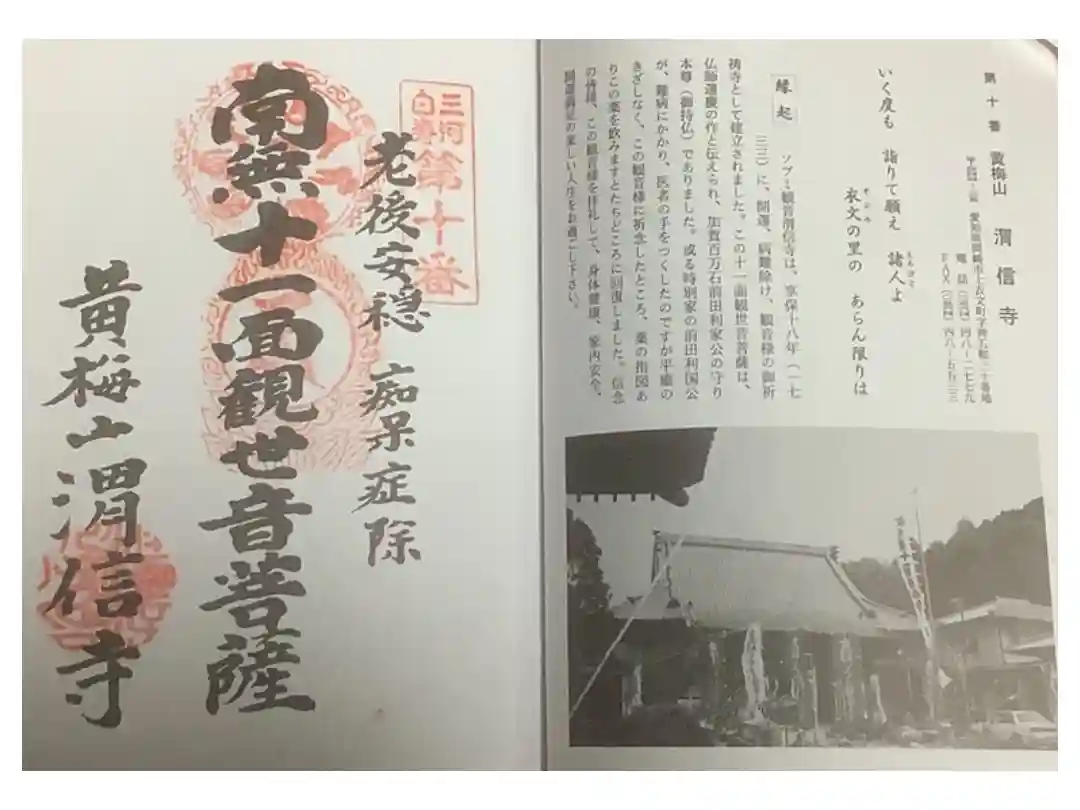 第十番 黄梅山 渭信寺
いく度も 詣りて願え 諸人よ
衣文の里の あらん限りは
縁起
ソブミ観音渭信寺は、享保十八年(一七
三三)に、開運、病難除け、観音様の御祈
祷寺として建立されました。この十一面観世音菩薩は、
仏師運慶の作と伝えられ、加賀百万石前田利家公の守り
本尊(御持仏)でありました。或る時別家の前田利国公
が、難病にかかり、医者の手をつくしたのですが平癒の
きざしなく、この観音様に祈念したところ、薬の指図あ
りこの薬を飲みますとたちどころに回復しました。信念
の皆様、この観音様を拝礼して、身体健康、家内安全、
開運満足の楽しい人生をお過ごし下さい。
三河
白寿
第十番
老後安穏 痴呆症除
南無十一面観世音菩薩
黄梅山渭信寺